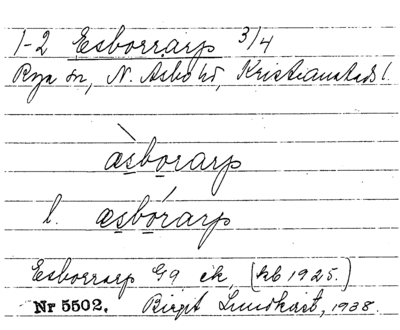 1-2 Esborrarp 3/4
Rya sn, N. Åsbo hd, Kristianstads l.
æsborarp
l. æsbórarp
Esborrarp G9 ek, (kb 1925.)
Nr 5502. Birgit Lundkvist, 1938.